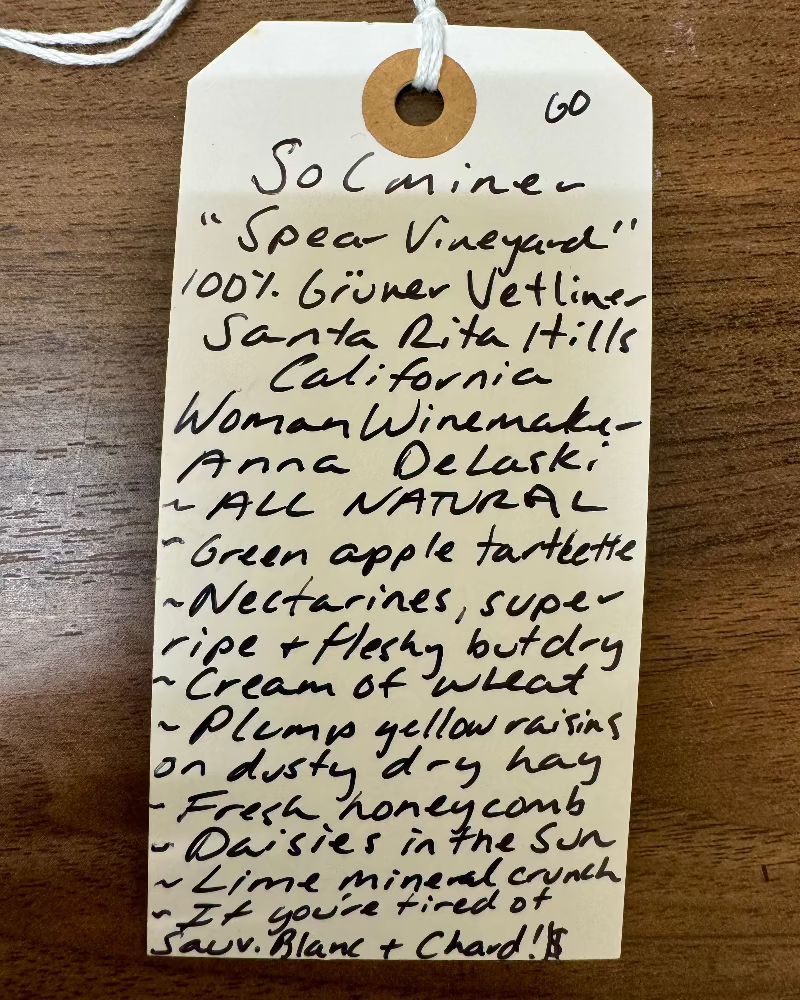 GO
Solminer
"Spear Vineyard"
100% Grüner Vetliner
Santa Rita Hills
California
Woman Winemaker
Anna DeLaski
~ ALL NATURAL
~ Green apple tartlette
~ Nectarines, super
ripe + fleshy but dry
~ Cream of wheat
~ Plump yellow raisins
on dusty dry hay
~ Fresh honeycomb
~ Daisies in the Sun
~ Lime mineral crunch
~ If you're tired of
Sauv. Blanc + Chard!